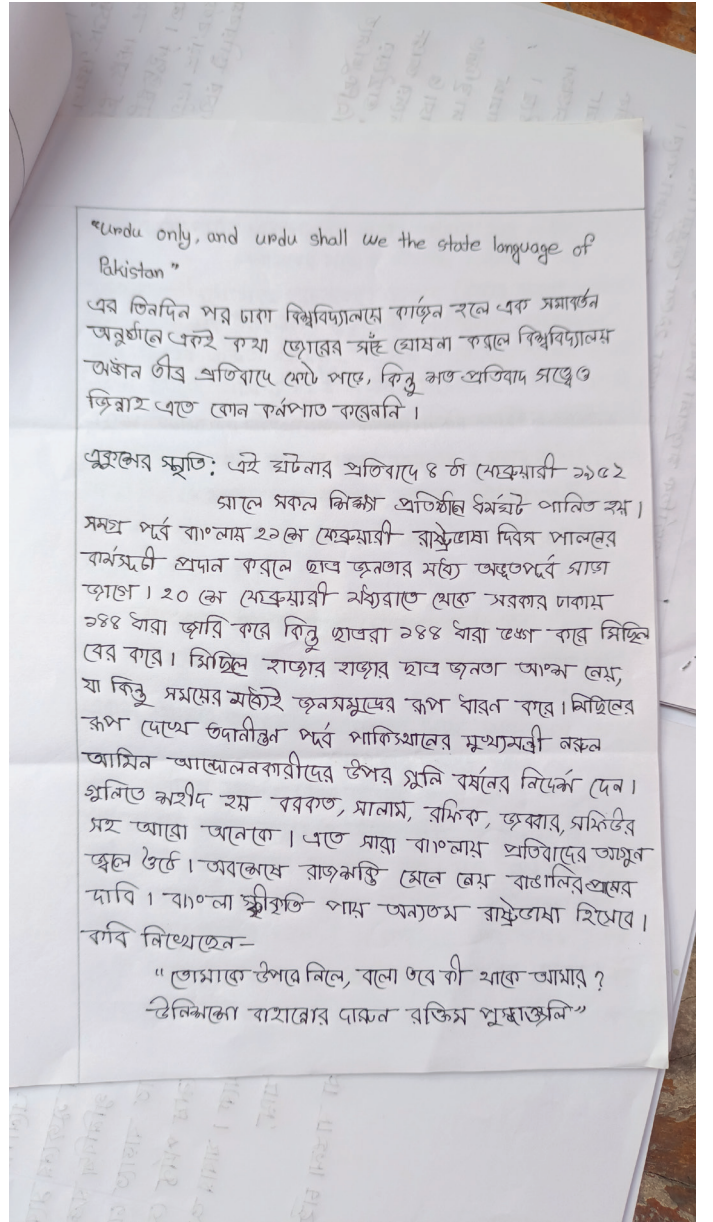 "urdu only, and urdu shall we the state language of
Pakistan"
এর তিনদিন পর ঢাকা বিশ্ববিদ্যালয়ে কার্জন হলে এক সমাবর্তন
অনুষ্ঠানে একই কথা জোরের সঙ্গে ঘোষনা করলে বিশ্ববিদ্যালয়
অঙ্গন তীব্র প্রতিবাদে ফেটে পড়ে, কিন্তু শত প্রতিবাদ সত্ত্বেও
জিন্নাহ এতে কোন কর্নপাত করেননি ।
একুশের স্মৃতি: এই ঘটনার প্রতিবাদে ৪ ঠা ফেব্রুয়ারী ১৯৫২
সালে সকল শিক্ষা প্রতিষ্ঠানে ধর্মঘট পালিত হয় ।
সমগ্র পূর্ব বাংলায় ২১শে ফেব্রুয়ারী রাষ্ট্রভাষা দিবস পালনের
কর্মসূচী প্রদান করলে ছাত্র জনতার মধ্যে অদ্ভূতপূর্ব সাড়া
জাগে । ২০ শে ফেব্রুয়ারী মধ্যরাতে থেকে সরকার ঢাকায়
১৪৪ ধারা জারি করে কিন্তু ছাত্ররা ১৪৪ ধারা ভঙ্গ করে মিছিল
বের করে । মিছিলে হাজার হাজার ছাত্র জনতা অংশ নেয়,
যা কিছু সময়ের মধ্যেই জনসমুদ্রের রূপ ধারন করে । মিছিলের
রূপ দেখে তদানীন্তন পূর্ব পাকিস্থানের মুখ্যমন্ত্রী নরুল
আমিন আন্দোলনকারীদের উপর গুলি বর্ষনের নির্দেশ দেন ।
গুলিতে শহীদ হয় বরকত, সালাম, রফিক, জব্বার, সফিউর
সহ আরো অনেকে । এতে সারা বাংলায় প্রতিবাদের আগুন
জ্বলে ওঠে । অবশেষে রাজশক্তি মেনে নেয় বাঙালির প্রানের
দাবি । বাংলা স্বীকৃতি পায় অন্যতম রাষ্ট্রভাষা হিসেবে ।
কবি লিখেছেন–
"তোমাকে উপরে নিলে, বলো তবে কী থাকে আমার ?
উনিশশো বাহান্নোর দারুন রক্তিম পুষ্পাঞ্জলি"